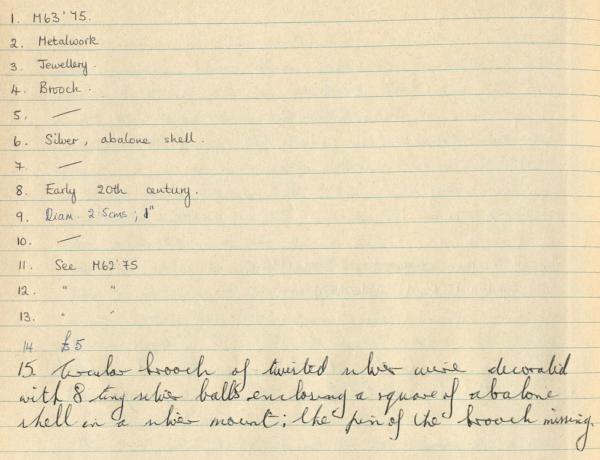 1. M63'75.
2. Metalwork
3. Jewellery.
4. Brooch.
5. —
6. Silver, abalone shell.
7. —
8. Early 20th century.
9. Diam. 2.5cms; 1"
10. —
11. See M62'75
12. " "
13. " "
14 £5
15. Circular brooch of twisted silver wire decorated
with 8 tiny silver balls enclosing a square of abalone
shell in a silver mount; the pin of the brooch missing.